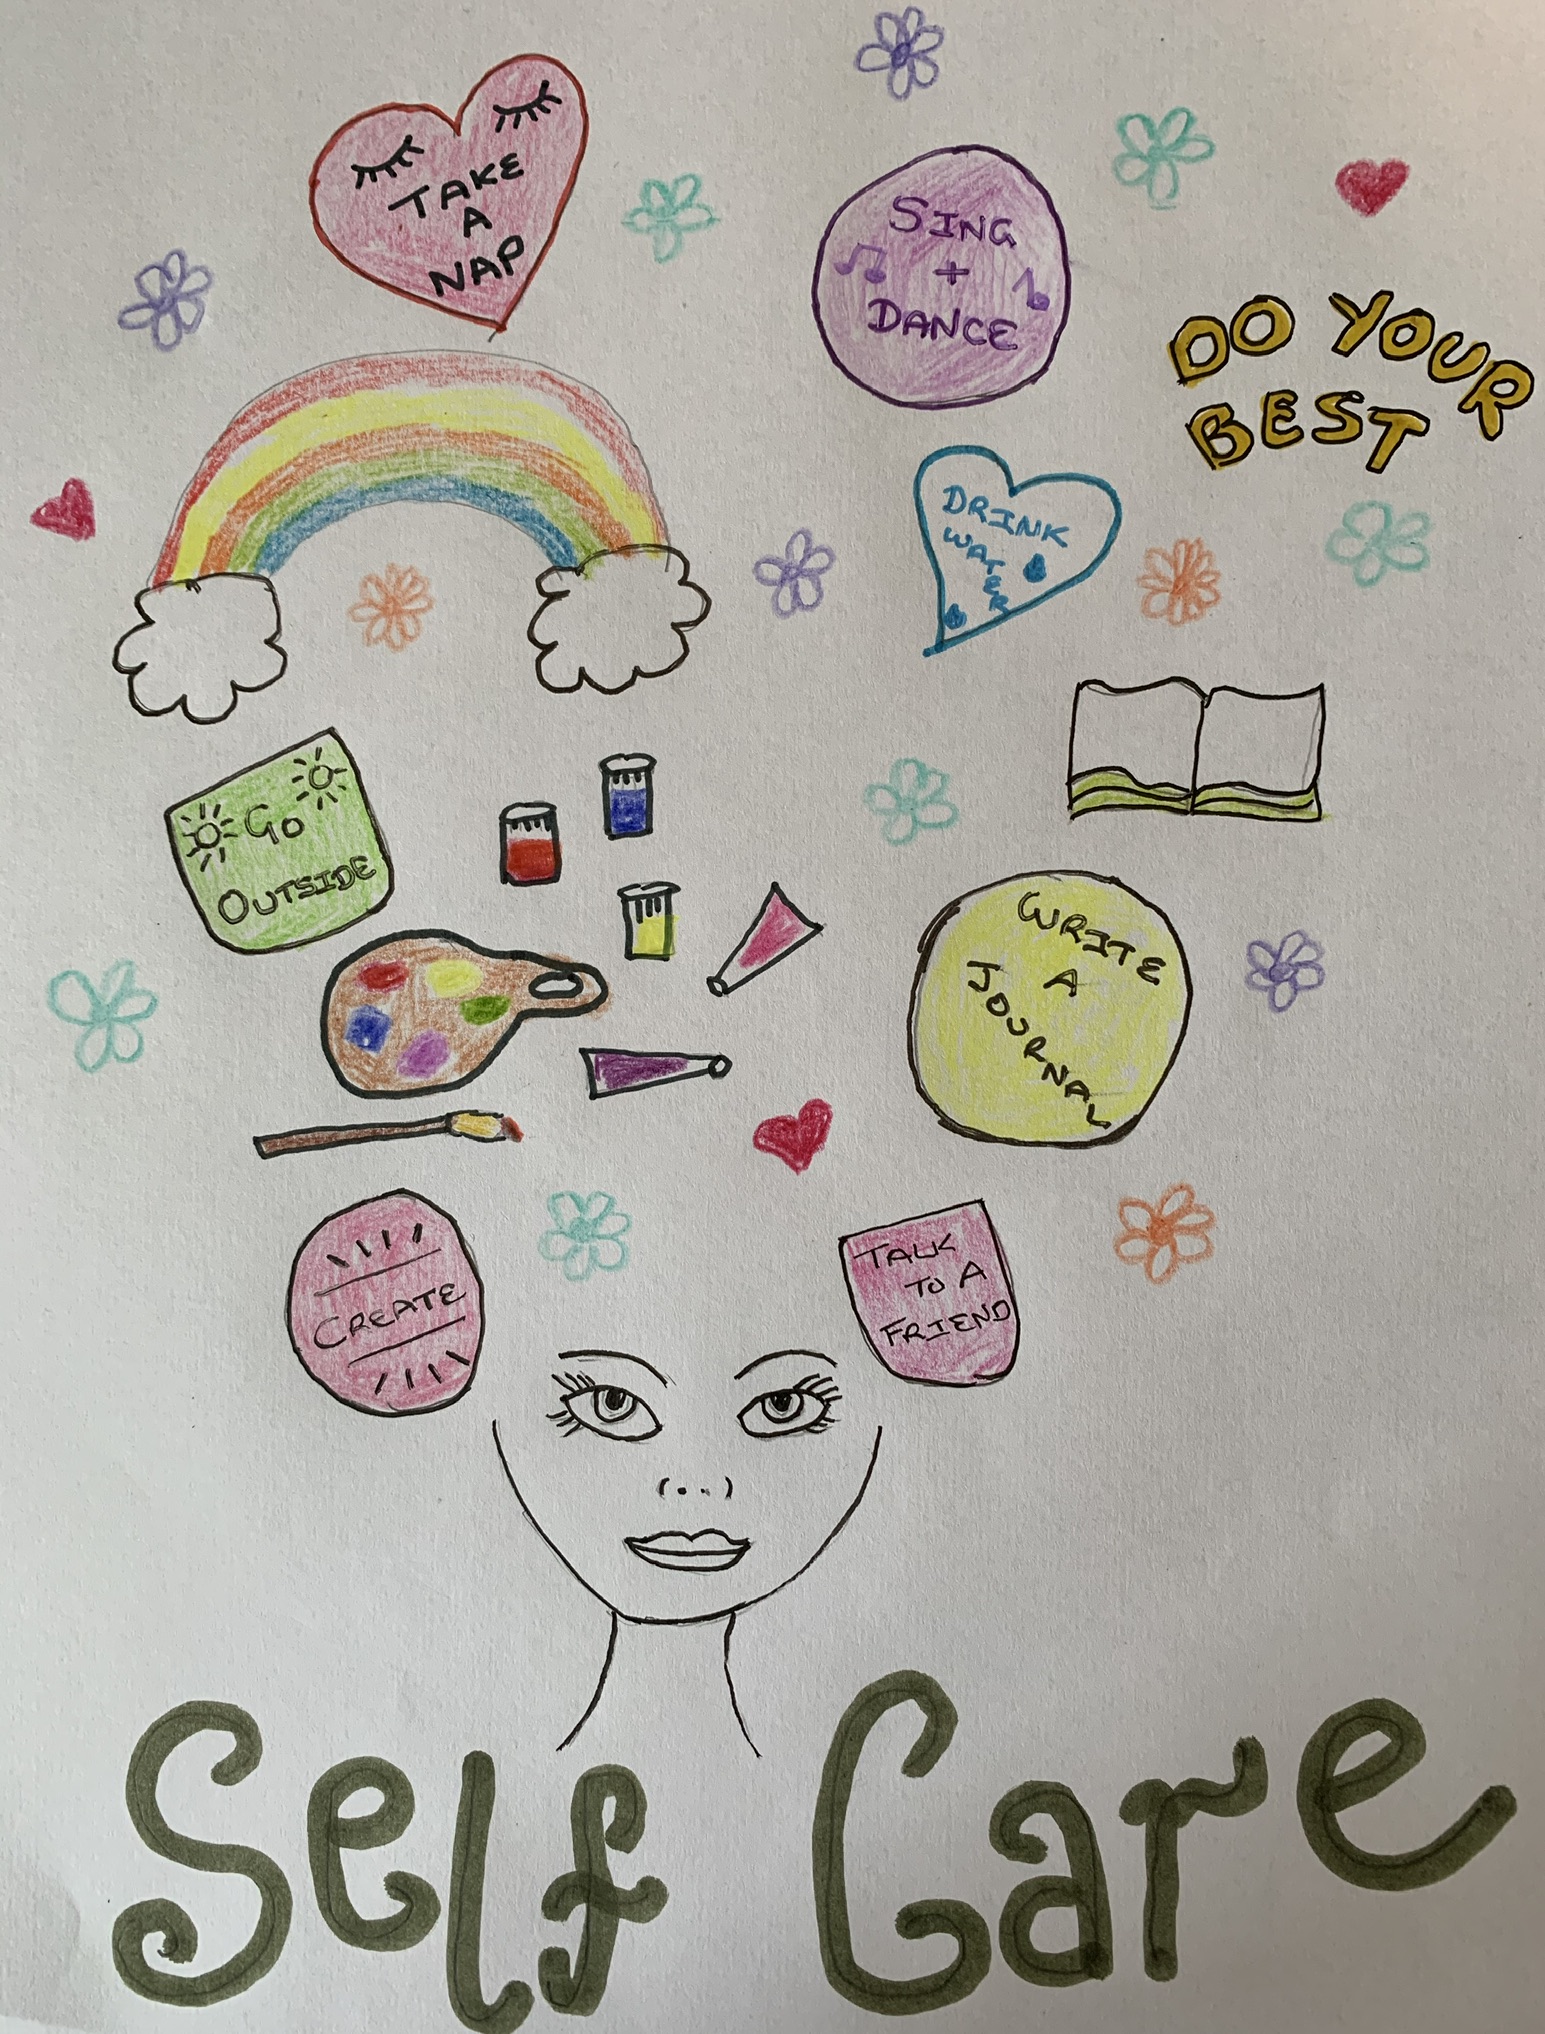 TAKE
A
NAP
SING
+
DANCE
DO YOUR
BEST
DRINK
WATER
GO
OUTSIDE
WRITE
A
JOURNAL
CREATE
TALK
TO A
FRIEND
Self Care